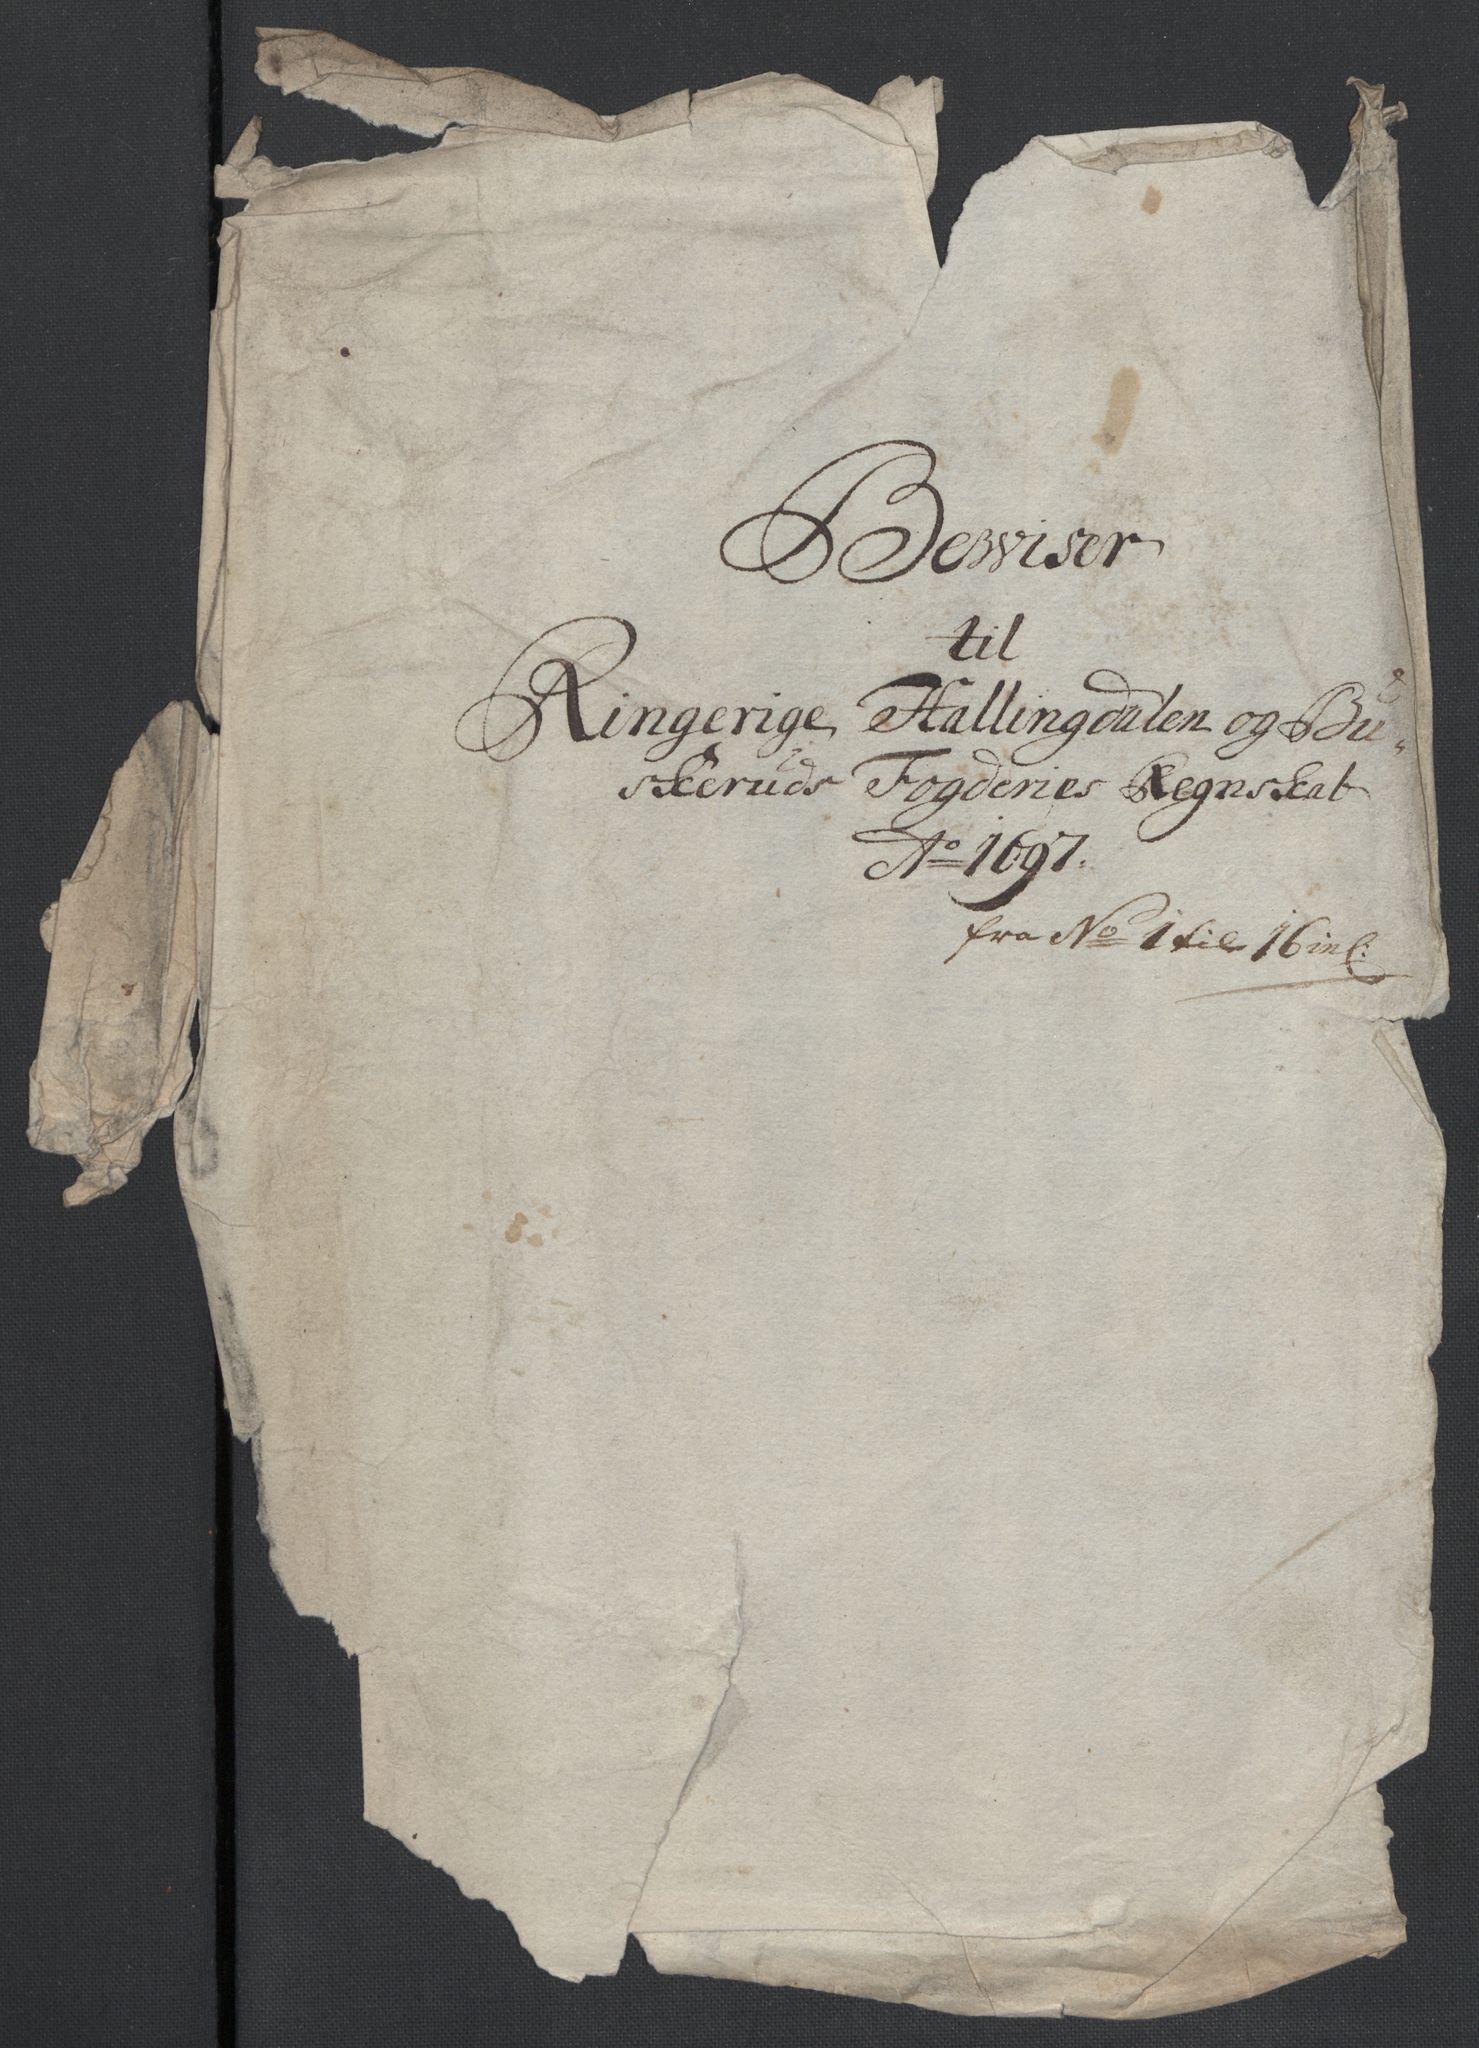 Bewiser
til
Ringerige Hallingdalen og Bu-
skeruds Fogderies Regnskab
Ao 1697.
fra No 1 til 16 incl: